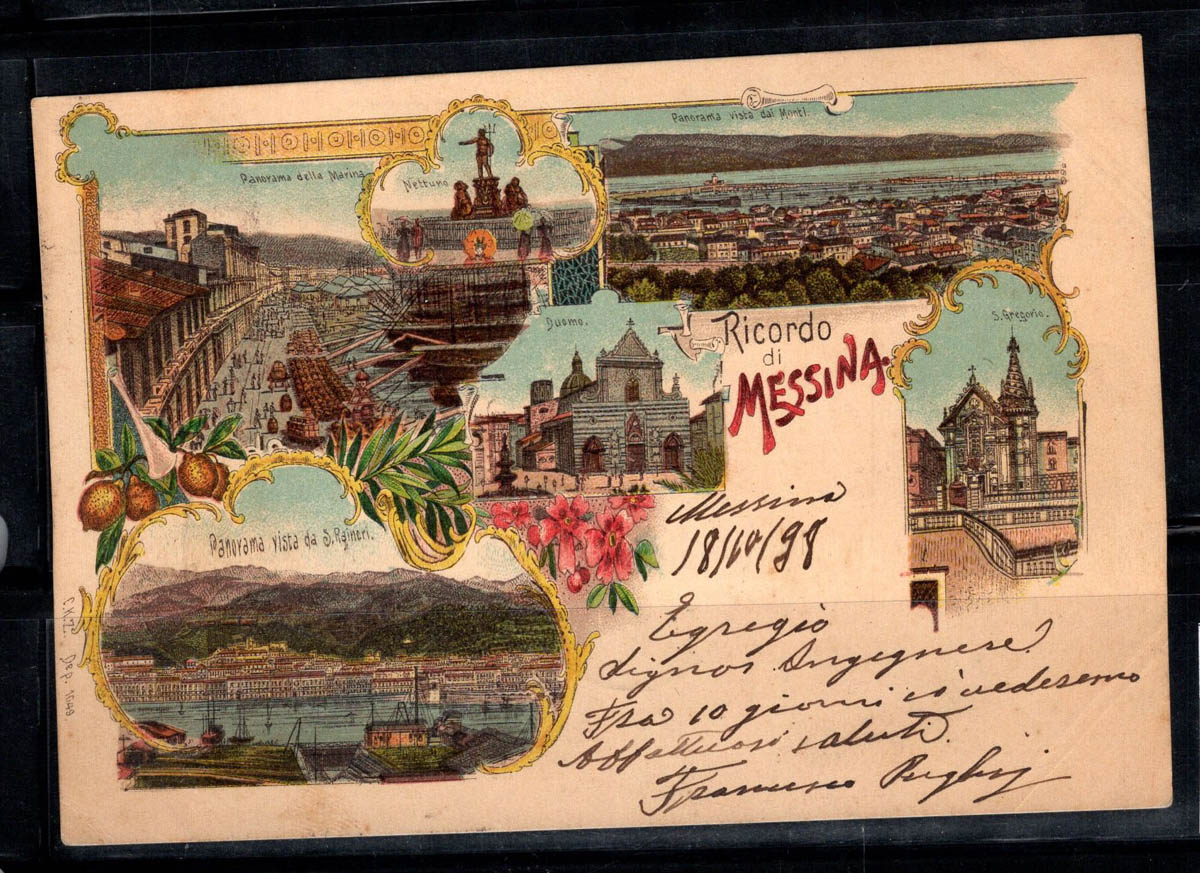 Panorama vista dai Monti.
Panorama della Marina
Nettuno
S. Gregorio.
Duomo.
Ricordo
di
MESSINA.
Panorama vista da S. Raineri.
Messina
18/10/98
Egregio
Signor Ingegnere
Fra 10 giorni ci vedremo
Affettuosi saluti.
Francesco
1098